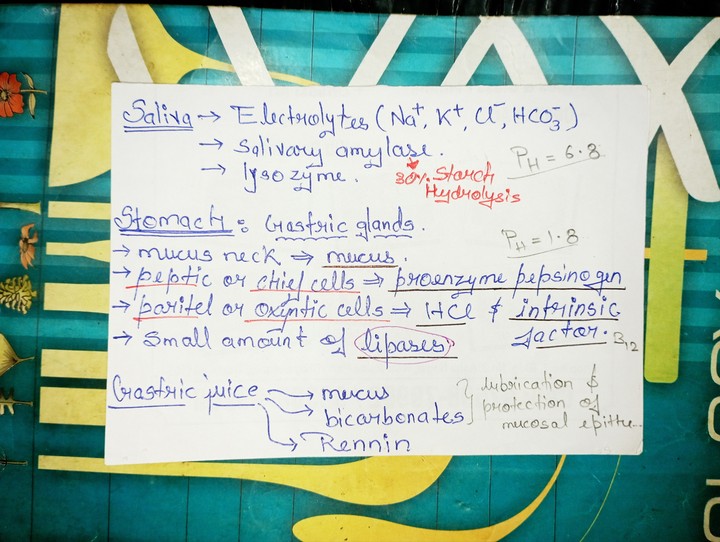 Saliva → Electrolytes (Na⁺, K⁺, Cl⁻, HCO₃⁻)
→ salivary amylase.
PH = 6.8
→ lysozyme.
30% Starch
Hydrolysis
Stomach : Gastric glands.
PH = 1.8
→ mucus neck ⇒ mucus.
→ peptic or chief cells ⇒ proenzyme pepsinogen
→ paritel or oxyntic cells ⇒ HCl & intrinsic
factor. B12
→ Small amount of lipases
Gastric juice → mucus
→ bicarbonates
→ Rennin
lubrication &
protection of
mucosal epithe...